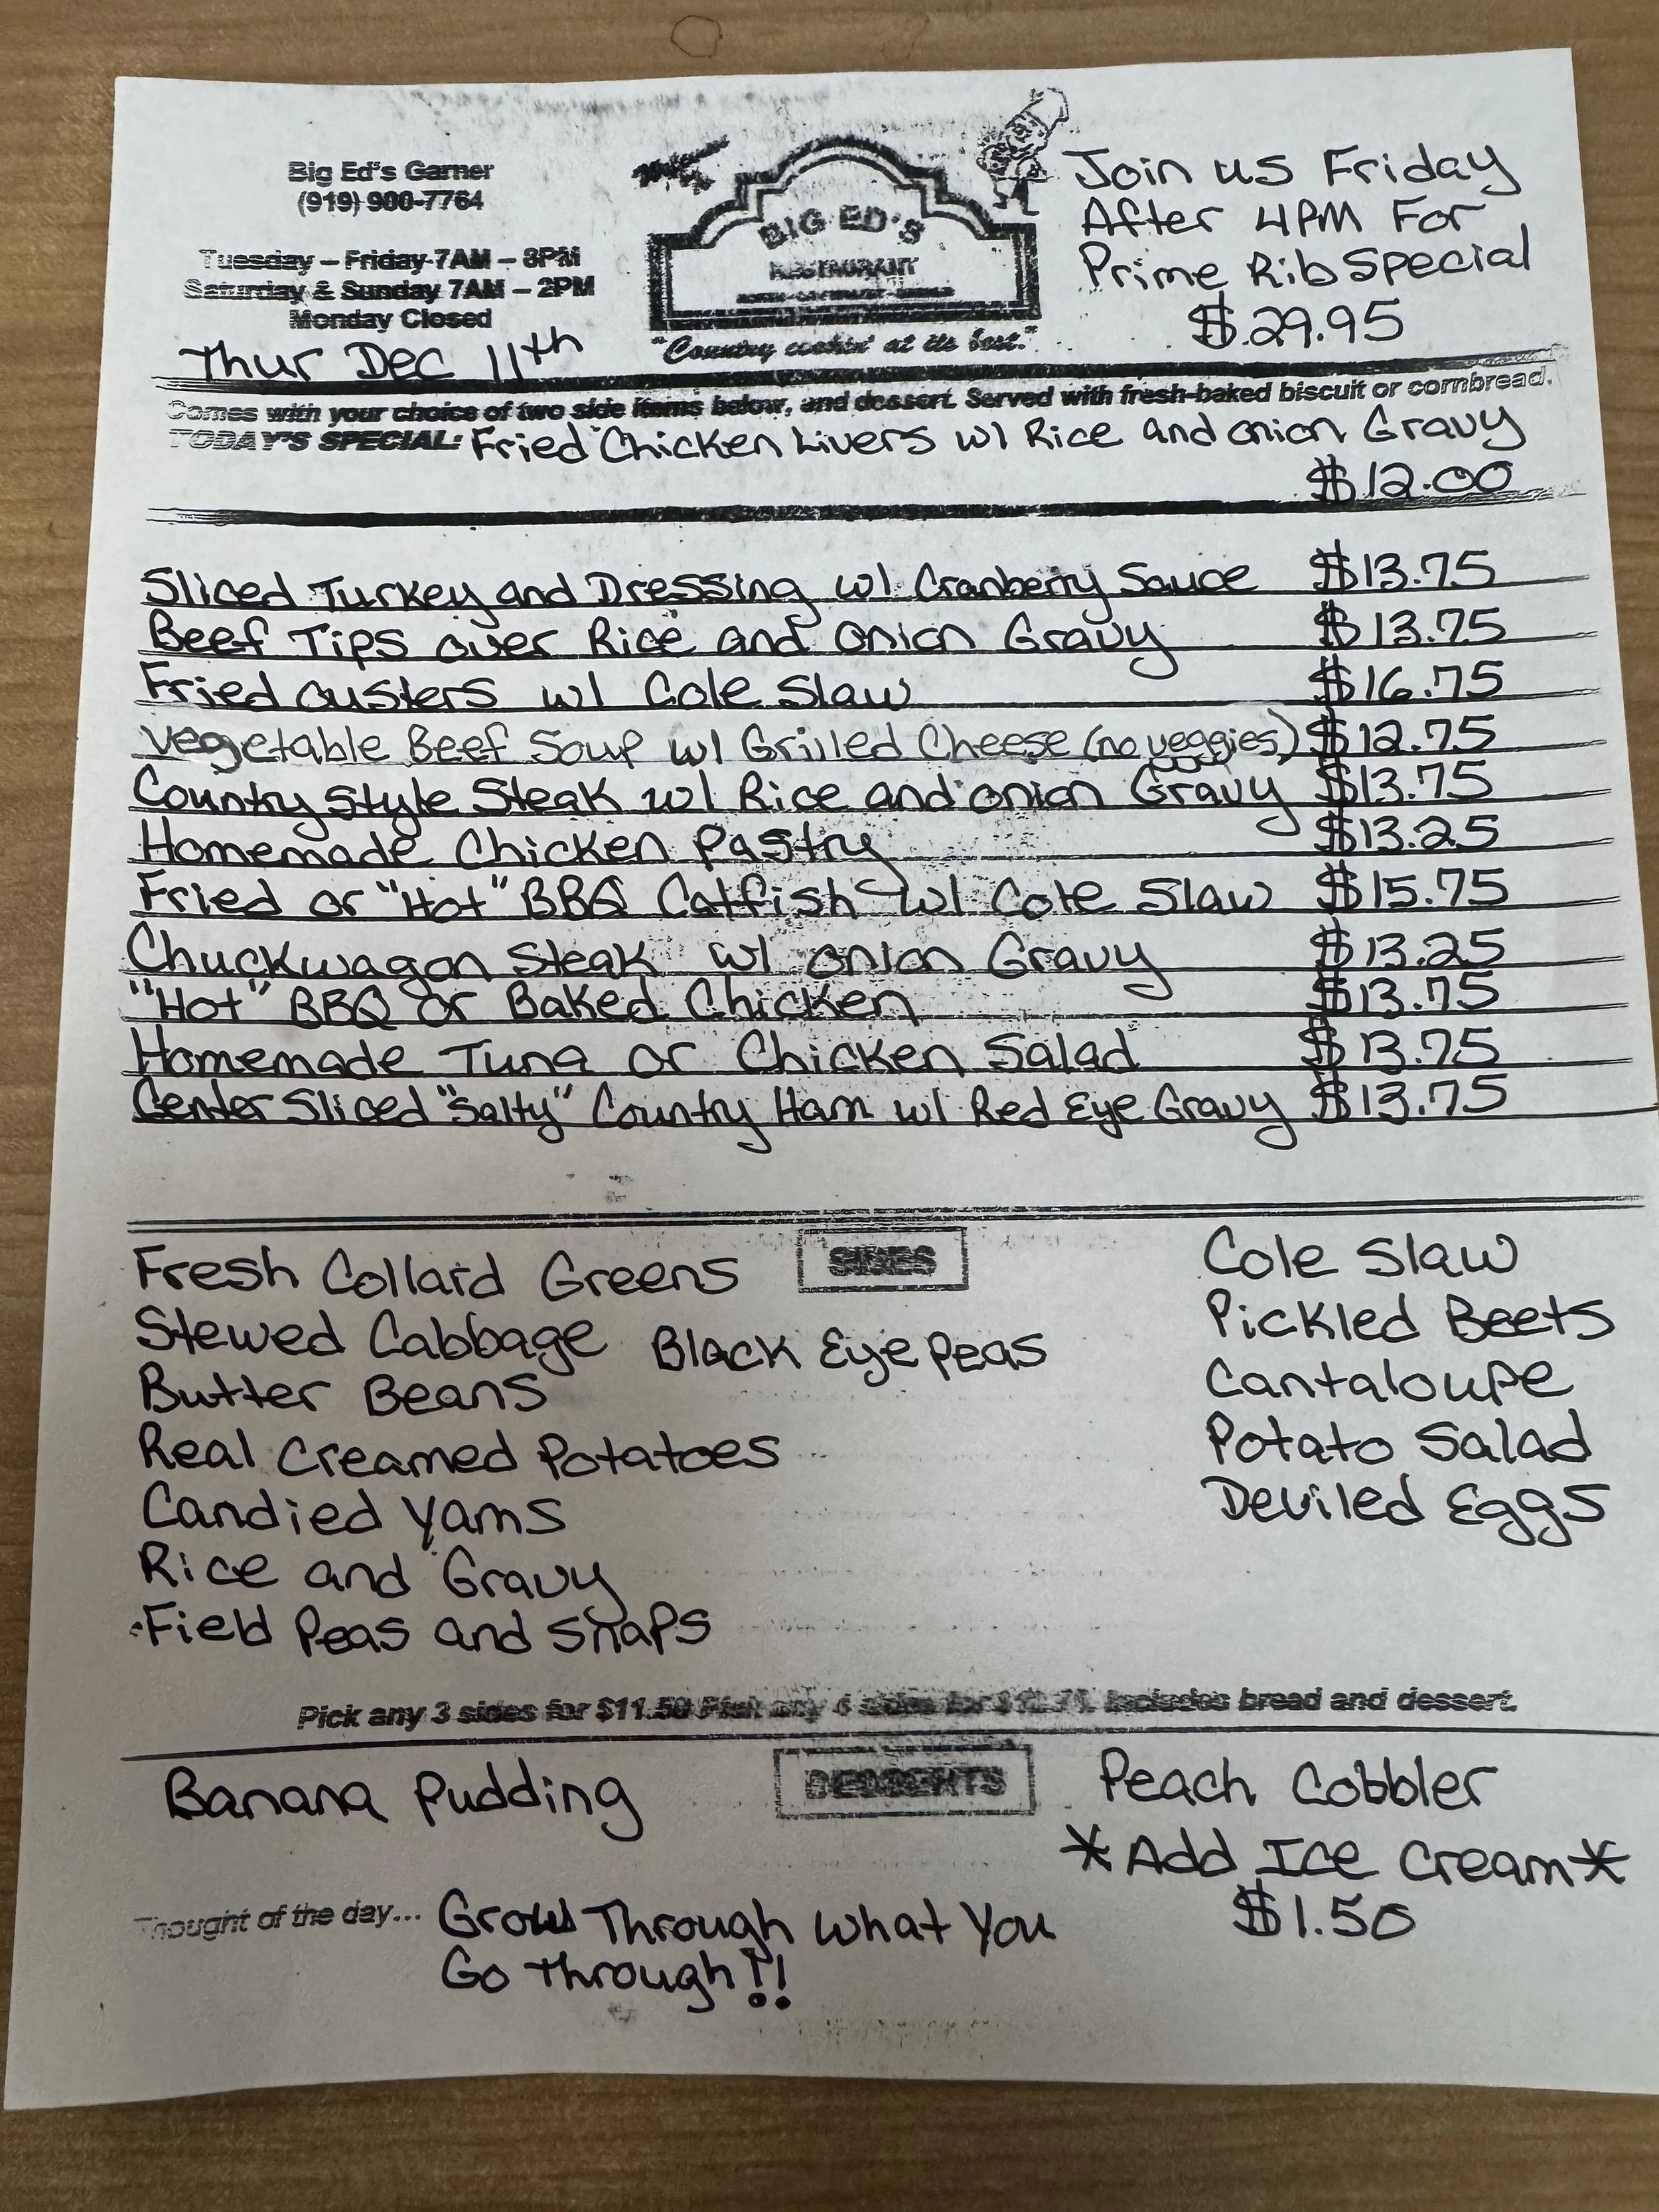 Big Ed's Garner
(919) 900-7764
Tuesday – Friday 7AM – 8PM
Saturday & Sunday 7AM – 2PM
Monday Closed
Thur Dec 11th
BIG ED'S
RESTAURANT
"Country cookin' at its best."
Join us Friday
After 4PM For
Prime Rib Special
$29.95
Comes with your choice of two side items below, and dessert. Served with fresh-baked biscuit or cornbread.
TODAY'S SPECIAL: Fried Chicken Livers w/ Rice and Onion Gravy
$12.00
Sliced Turkey and Dressing w/ Cranberry Sauce $13.75
Beef Tips over Rice and Onion Gravy $13.75
Fried Oysters w/ Cole Slaw $16.75
Vegetable Beef Soup w/ Grilled Cheese (no veggies) $12.75
Country Style Steak w/ Rice and Onion Gravy $13.75
Homemade Chicken Pastry $13.25
Fried or "Hot" BBQ Catfish w/ Cole Slaw $15.75
Chuckwagon Steak w/ Onion Gravy $13.25
"Hot" BBQ or Baked Chicken $13.75
Homemade Tuna or Chicken Salad $13.75
Center Sliced "Salty" Country Ham w/ Red Eye Gravy $13.75
SIDES
Fresh Collard Greens
Stewed Cabbage
Black Eye Peas
Butter Beans
Real Creamed Potatoes
Candied Yams
Rice and Gravy
Field Peas and Snaps
Cole Slaw
Pickled Beets
Cantaloupe
Potato Salad
Deviled Eggs
Pick any 3 sides for $11.50 Pick any 4 sides for Includes bread and dessert.
DESSERTS
Banana Pudding
Peach Cobbler
*Add Ice Cream*
$1.50
Thought of the day... Grow Through What You
Go Through!!